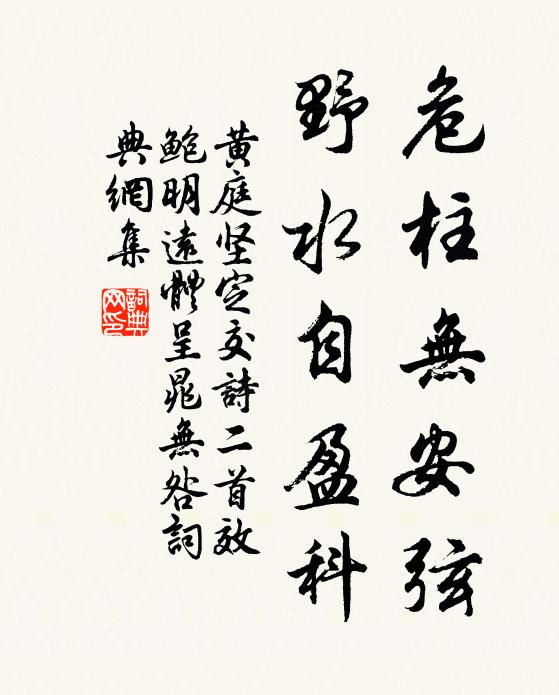 危柱無安弦
野水自盈科
黄庭坚定交詩二首效
鮑明遠體呈晁無咎詞
典網集
詞典
网印